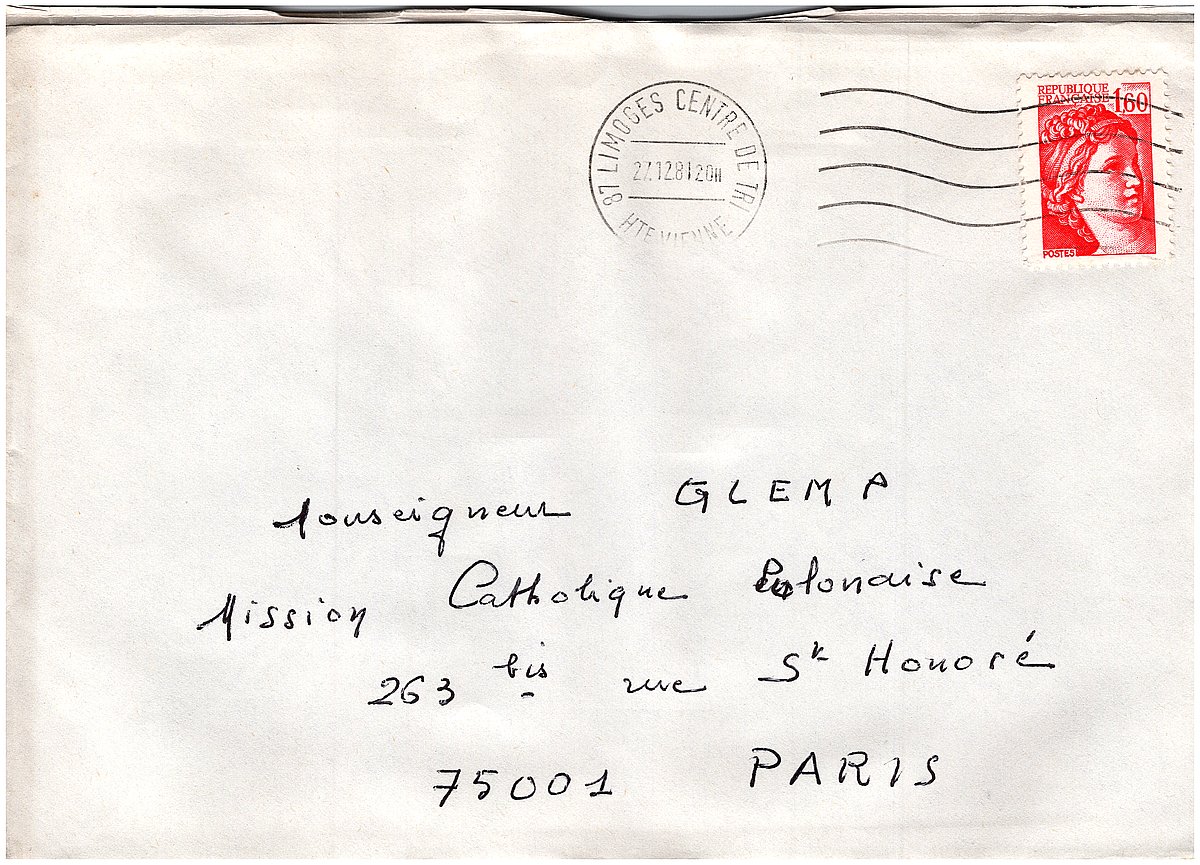 87 LIMOGES CENTRE DE TRI
27.12.81 20H
HTE VIENNE
REPUBLIQUE
FRANÇAISE 1,60
POSTES
Monseigneur GLEMP
Mission Catholique Polonaise
263 bis rue St Honoré
75001 PARIS